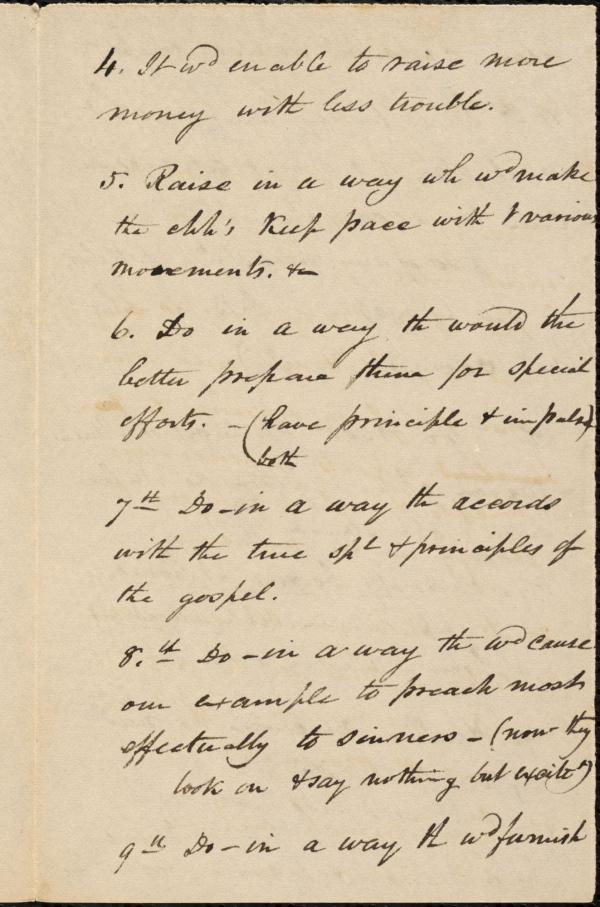 4. It wd enable to raise more
money with less trouble.
5. Raise in a way wh wd make
the chh's keep pace with & various
movements. &c
6. Do in a way th would the
better prepare them for special
efforts. - (have principle & impulse)
both
7th Do - in a way th accords
with the true spt & principles of
the gospel.
8.th Do - in a way th wd cause
our example to preach most
effectually to sinners - (now they
look on & say nothing but excitet)
9th Do - in a way th wd furnish